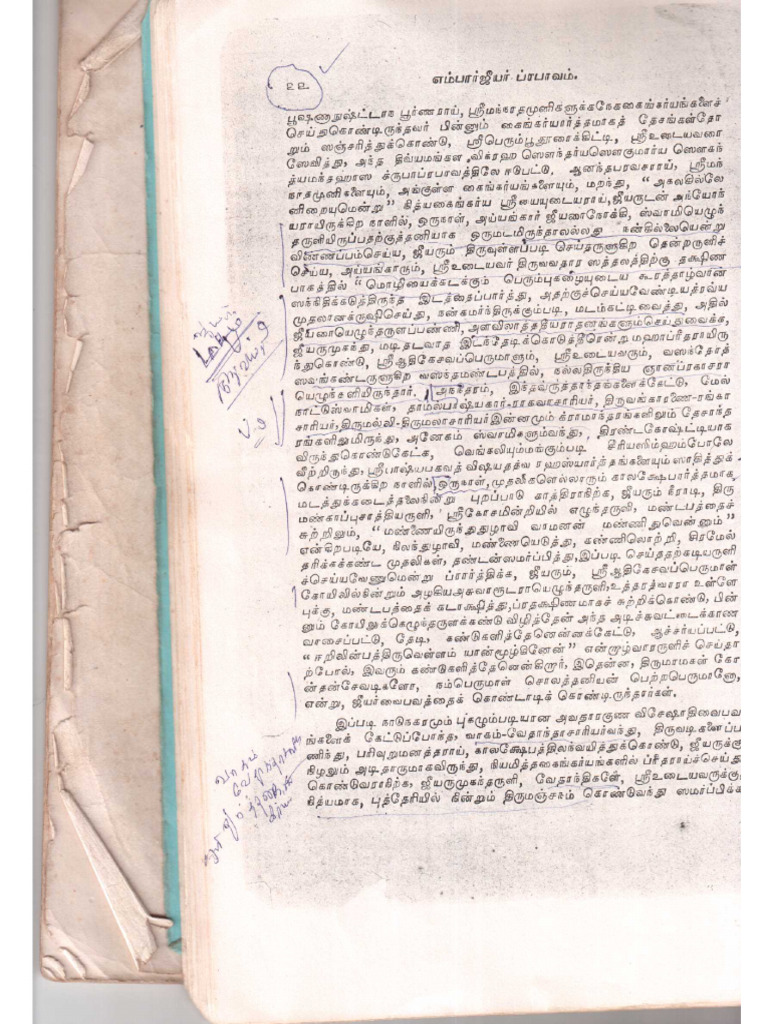 ௨௨
எம்பார்ஜீயர் ப்ரபாவம்.
பூஷணாநுஷ்ட்டாந பூர்ணராய், ஸ்ரீமந்நாதமுனிகளுக்கநேககைங்கர்யங்களைச்
செய்துகொண்டிருந்தவர் பின்னும் கைங்கர்யார்த்தமாகத் தேசங்கள்தோ
றும் ஸஞ்சரித்துக்கொண்டு, ஸ்ரீபெரும்பூதூரைக்கிட்டி, ஸ்ரீஉடையவரை
ஸேவித்து, அந்த திவ்யமங்கள விக்ரஹ ஸௌந்தர்யஸௌகுமார்ய ஸௌகந்
த்யமந்தஹாஸ ஈடுபட்டு. ஆனந்தபரவசராய், ஸ்ரீமந்
நாதமுனிகளையும், அங்குள்ள கைங்கர்யங்களையும், மறந்து, “ அகலகில்லே
னிறையுமென்று” நித்யகைங்கர்ய ஸ்ரீயையுடையராய்,ஜீயருடன் அந்யோந்
யராயிருக்கிற நாளில், ஒருநாள், அய்யங்கார் ஜீயரைநோக்கி, ஸ்வாமியெழுந்
தருளியிருப்பதற்குத்தனியாக ஒருமடமிருந்தாலல்லது நன்கில்லையென்று
விண்ணப்பம்செய்ய, ஜீயரும் திருவுள்ளப்படி செய்தருளுகிற தென்றருளிச்
செய்ய, அய்யங்காரும், ஸ்ரீஉடையவர் திருவவதார ஸ்தலத்திற்கு தக்ஷிண
பாகத்தில் “ மொழியைக்கடக்கும் பெரும்புகழையுடைய கூரத்தாழ்வான்
ஸந்நிதிக்கடுத்திருந்த இடத்தைப்பார்த்து, அதற்குச்செய்யவேண்டியத்ரவ்ய
முதலானக்ருஷிசெய்து, நன்கமர்ந்திருக்கும்படி, மடம்கட்டிவைத்து, அதில்
ஜீயரையெழுந்தருளப்பண்ணி, அளவிலாத்ததியாராதனங்களும்செய்துவைக்க,
ஜீயருமுகந்து, மடிதடவாத இடந்தேடிக்கொடுத்தீரென்று மஹாப்ரீதராயிரு
ந்துகொண்டு, ஸ்ரீஆதிகேசவப்பெருமாளும், ஸ்ரீஉடையவரும், வஸந்தோத்
ஸவங்கண்டருளுகிற வஸந்தமண்டபத்தில், நல்லதிருந்திய ஞானப்ரகாசரா
யெழுந்தருளியிருந்தார். அநந்தரம், இந்தவ்ருத்தாந்தங்களைக்கேட்டு, மேல்
நாட்டுஸ்வாமிகள், தாமல்பாஷ்யகார்-ராகவாசாரியர், திருவங்காரணை-ரங்கா
சாரியர்,திருமல்லி-திருமலாசாரியர்இன்னமும் க்ராமாந்தரங்களிலும் தேசாந்த
ரங்களிலுமிருந்து, அனேகம் ஸ்வாமிகளும்வந்து, திரண்டகோஷ்ட்டியாக
விருந்துகொண்டுகேட்க, வெங்கலியும்மங்கும்படி சீரியஸிம்ஹம்போலே
வீற்றிருந்து, ஸ்ரீபாஷ்யபகவத் விஷயதத்வ ரஹஸ்யார்த்தங்களையும் ஸாதித்துக்
கொண்டிருக்கிற நாளில் ஒருநாள்,முதலிகளெல்லாரும் காலக்ஷேபார்த்தமாக
மடத்துக்கடைத்தலைநின்று புறப்பாடு காத்திராநிற்க, ஜீயரும் நீராடி, திரு
மண்காப்புசாத்தியருளி, ஸ்ரீகோசமின்றியில் எழுந்தருளி, மண்டபத்தைச்
சுற்றிலும், “ மண்ணையிருந்துதுழாவி வாமனன் மண்ணிதுவென்னும்”
என்கிறபடியே, கிலந்துழாவி, மண்ணையெடுத்து, கண்ணிலொற்றி, சிரமேல்
தரிக்கக்கண்ட முதலிகள், தண்டன்ஸமர்ப்பித்து,இப்படி செய்ததற்கடியருளி
ச்செய்யவேணுமென்று ப்ரார்த்திக்க, ஜீயரும், ஸ்ரீஆதிகேசவப்பெருமாள்
கோயிலில்நின்றும் அழகியஅசுவாரூடராயெழுந்தருளி,உத்தரத்வாரா உள்ளே
புக்கு, மண்டபத்தைக் கடாக்ஷித்து,ப்ரதக்ஷிணமாகச் சுற்றிக்கொண்டு, பின்
னும் கோயிலுக்கெழுந்தருளக்கண்டு விழித்தேன் அந்த அடிச்சுவட்டைக்காண
வாசைப்பட்டு, தேடி, கண்டுகளித்தேனென்னக்கேட்டு, ஆச்சர்யப்பட்டு,
“ ஈறிலின்பத்திருவெள்ளம் யான்மூழ்கினேன்” என்றாழ்வாரருளி செய்தா
ற்போல், இவரும் கண்டுகளித்தேனென்கிறார், இதென்ன, திருமாமகள் கோ
ன்தன்சேவடிகளோ, நம்பெருமாள் சொலத்தனியன் பெற்றபெருமாளோ,
என்று, ஜீயர்வைபவத்தைக் கொண்டாடிக் கொண்டிருந்தார்கள்.
இப்படி நாடுநகரமும் புகழும்படியான அவதாரகுண விசேஷாதிவைபவ
ங்களைக் கேட்டுப்போந்த, வாகம்-வேதாந்தாசாரியர்வந்து, திருவடிகளைப்ப
ணிந்து, பரிவுறுமனத்தராய், காலக்ஷேபத்திலந்வயித்துக்கொண்டு, ஜீயருக்கு
நிழலும் அடிதாருமாகவிருந்து, நியமித்தகைங்கர்யங்களில் ப்ரீதராய்ச்செய்து
கொண்டுவராநிற்க, ஜீயருமுகந்தருளி, வேதாந்திகளே, ஸ்ரீஉடையவருக்கு
நித்யமாக, புத்தேரியில் நின்றும் திருமஞ்சனம் கொண்டுவந்து ஸமர்ப்பிக்க
வாகம்